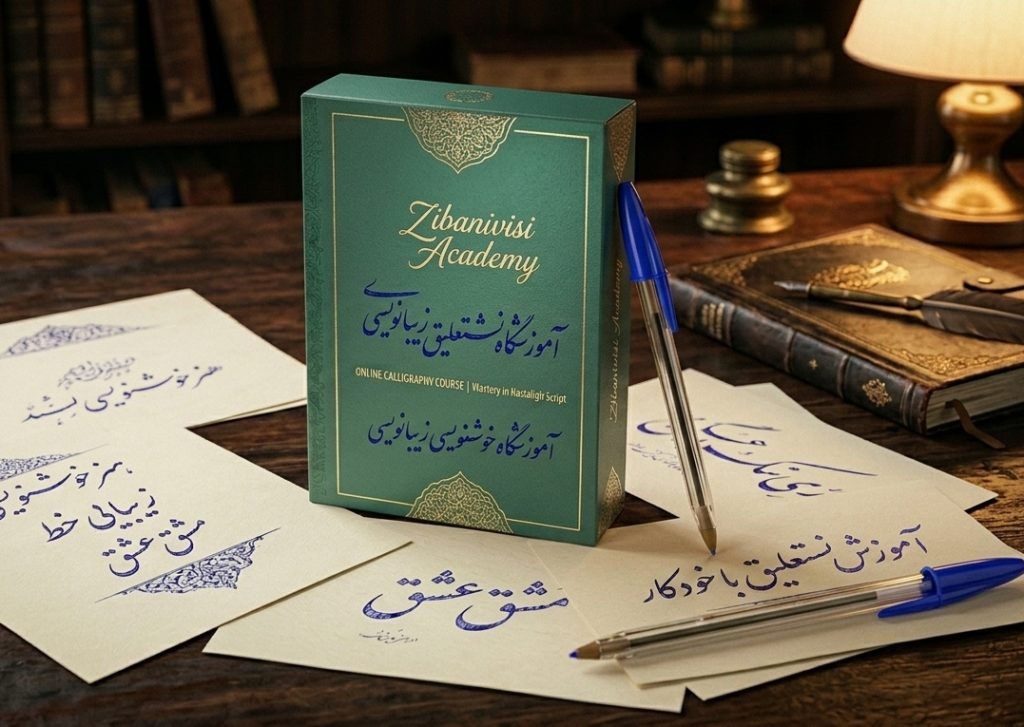 Zibanivisi
Academy
آموزشگاه نستعلیق زیبانویسی
ONLINE CALLIGRAPNY COURSE | Wartery in Nastaligh Script
آموزشگاه خوشنویسی زیبانویسی
Academy
هنر خوشنویسی
هنر خوشنویسی
زیبایی خط
مشق عشق
مشق عشق
آموزش نستعلیق با خودکار